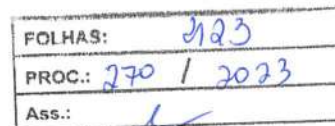 FOLHAS: 2123
PROC.: 270 / 2023
Ass.: